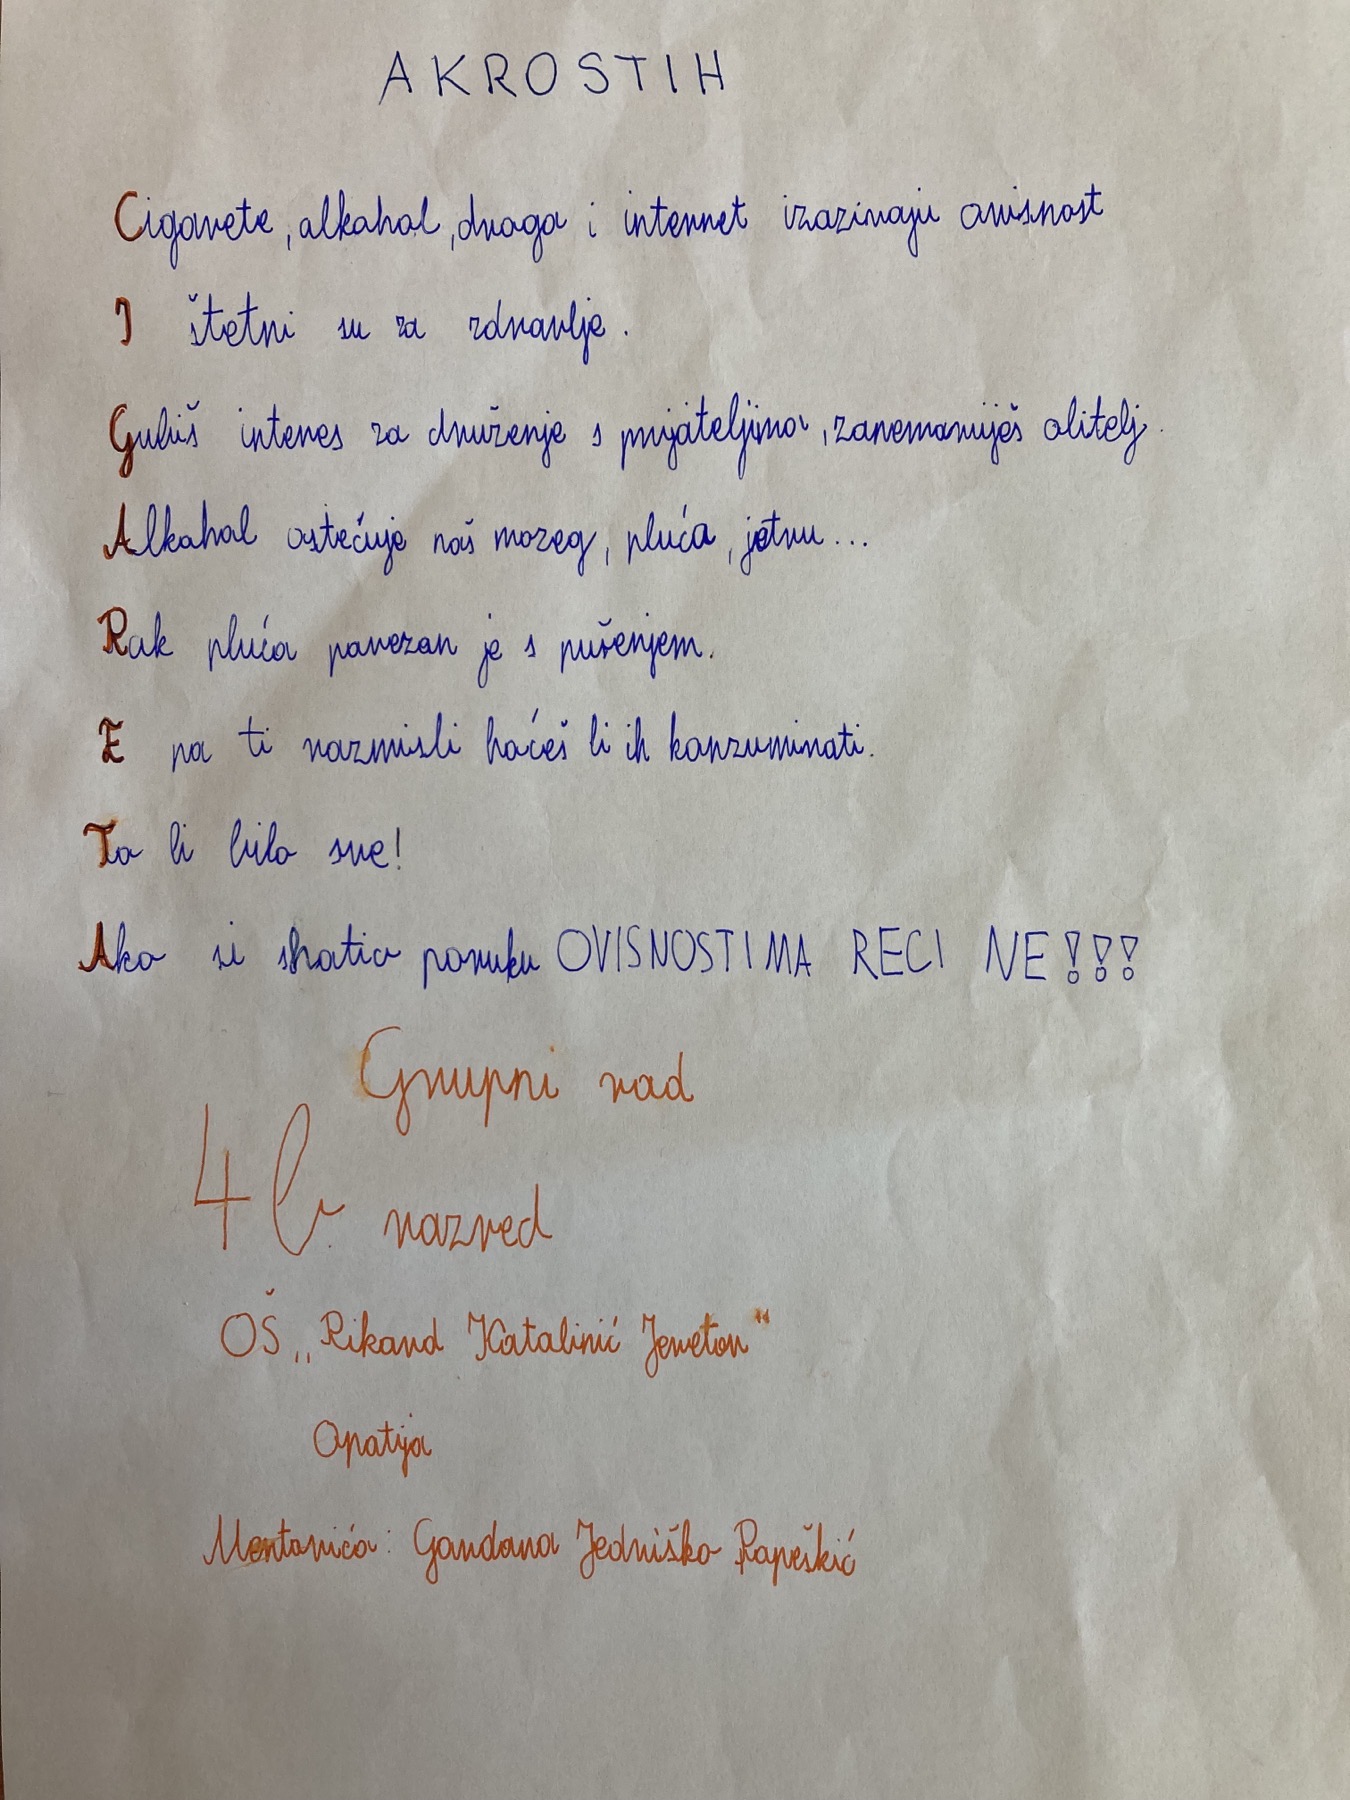 AKROSTIH
Cigarete, alkohol, droga i internet izazivaju ovisnost
I štetni su za zdravlje.
Gubiš interes za druženje s prijateljima, zanemariješ obitelj.
Alkohol oštećuje naš mozeg, pluća, jetru...
Rak pluća povezan je s pušenjem.
E pa ti razmisli hoćeš li ih konzumirati.
To bi bilo sve!
Ako si shatio poruku OVISNOSTIMA RECI NE!!!
Grupni rad
4.b razred
OŠ „Rikard Katalinić Jeretov"
Opatija
Mentorica: Gordana Jedriško Rapeškić